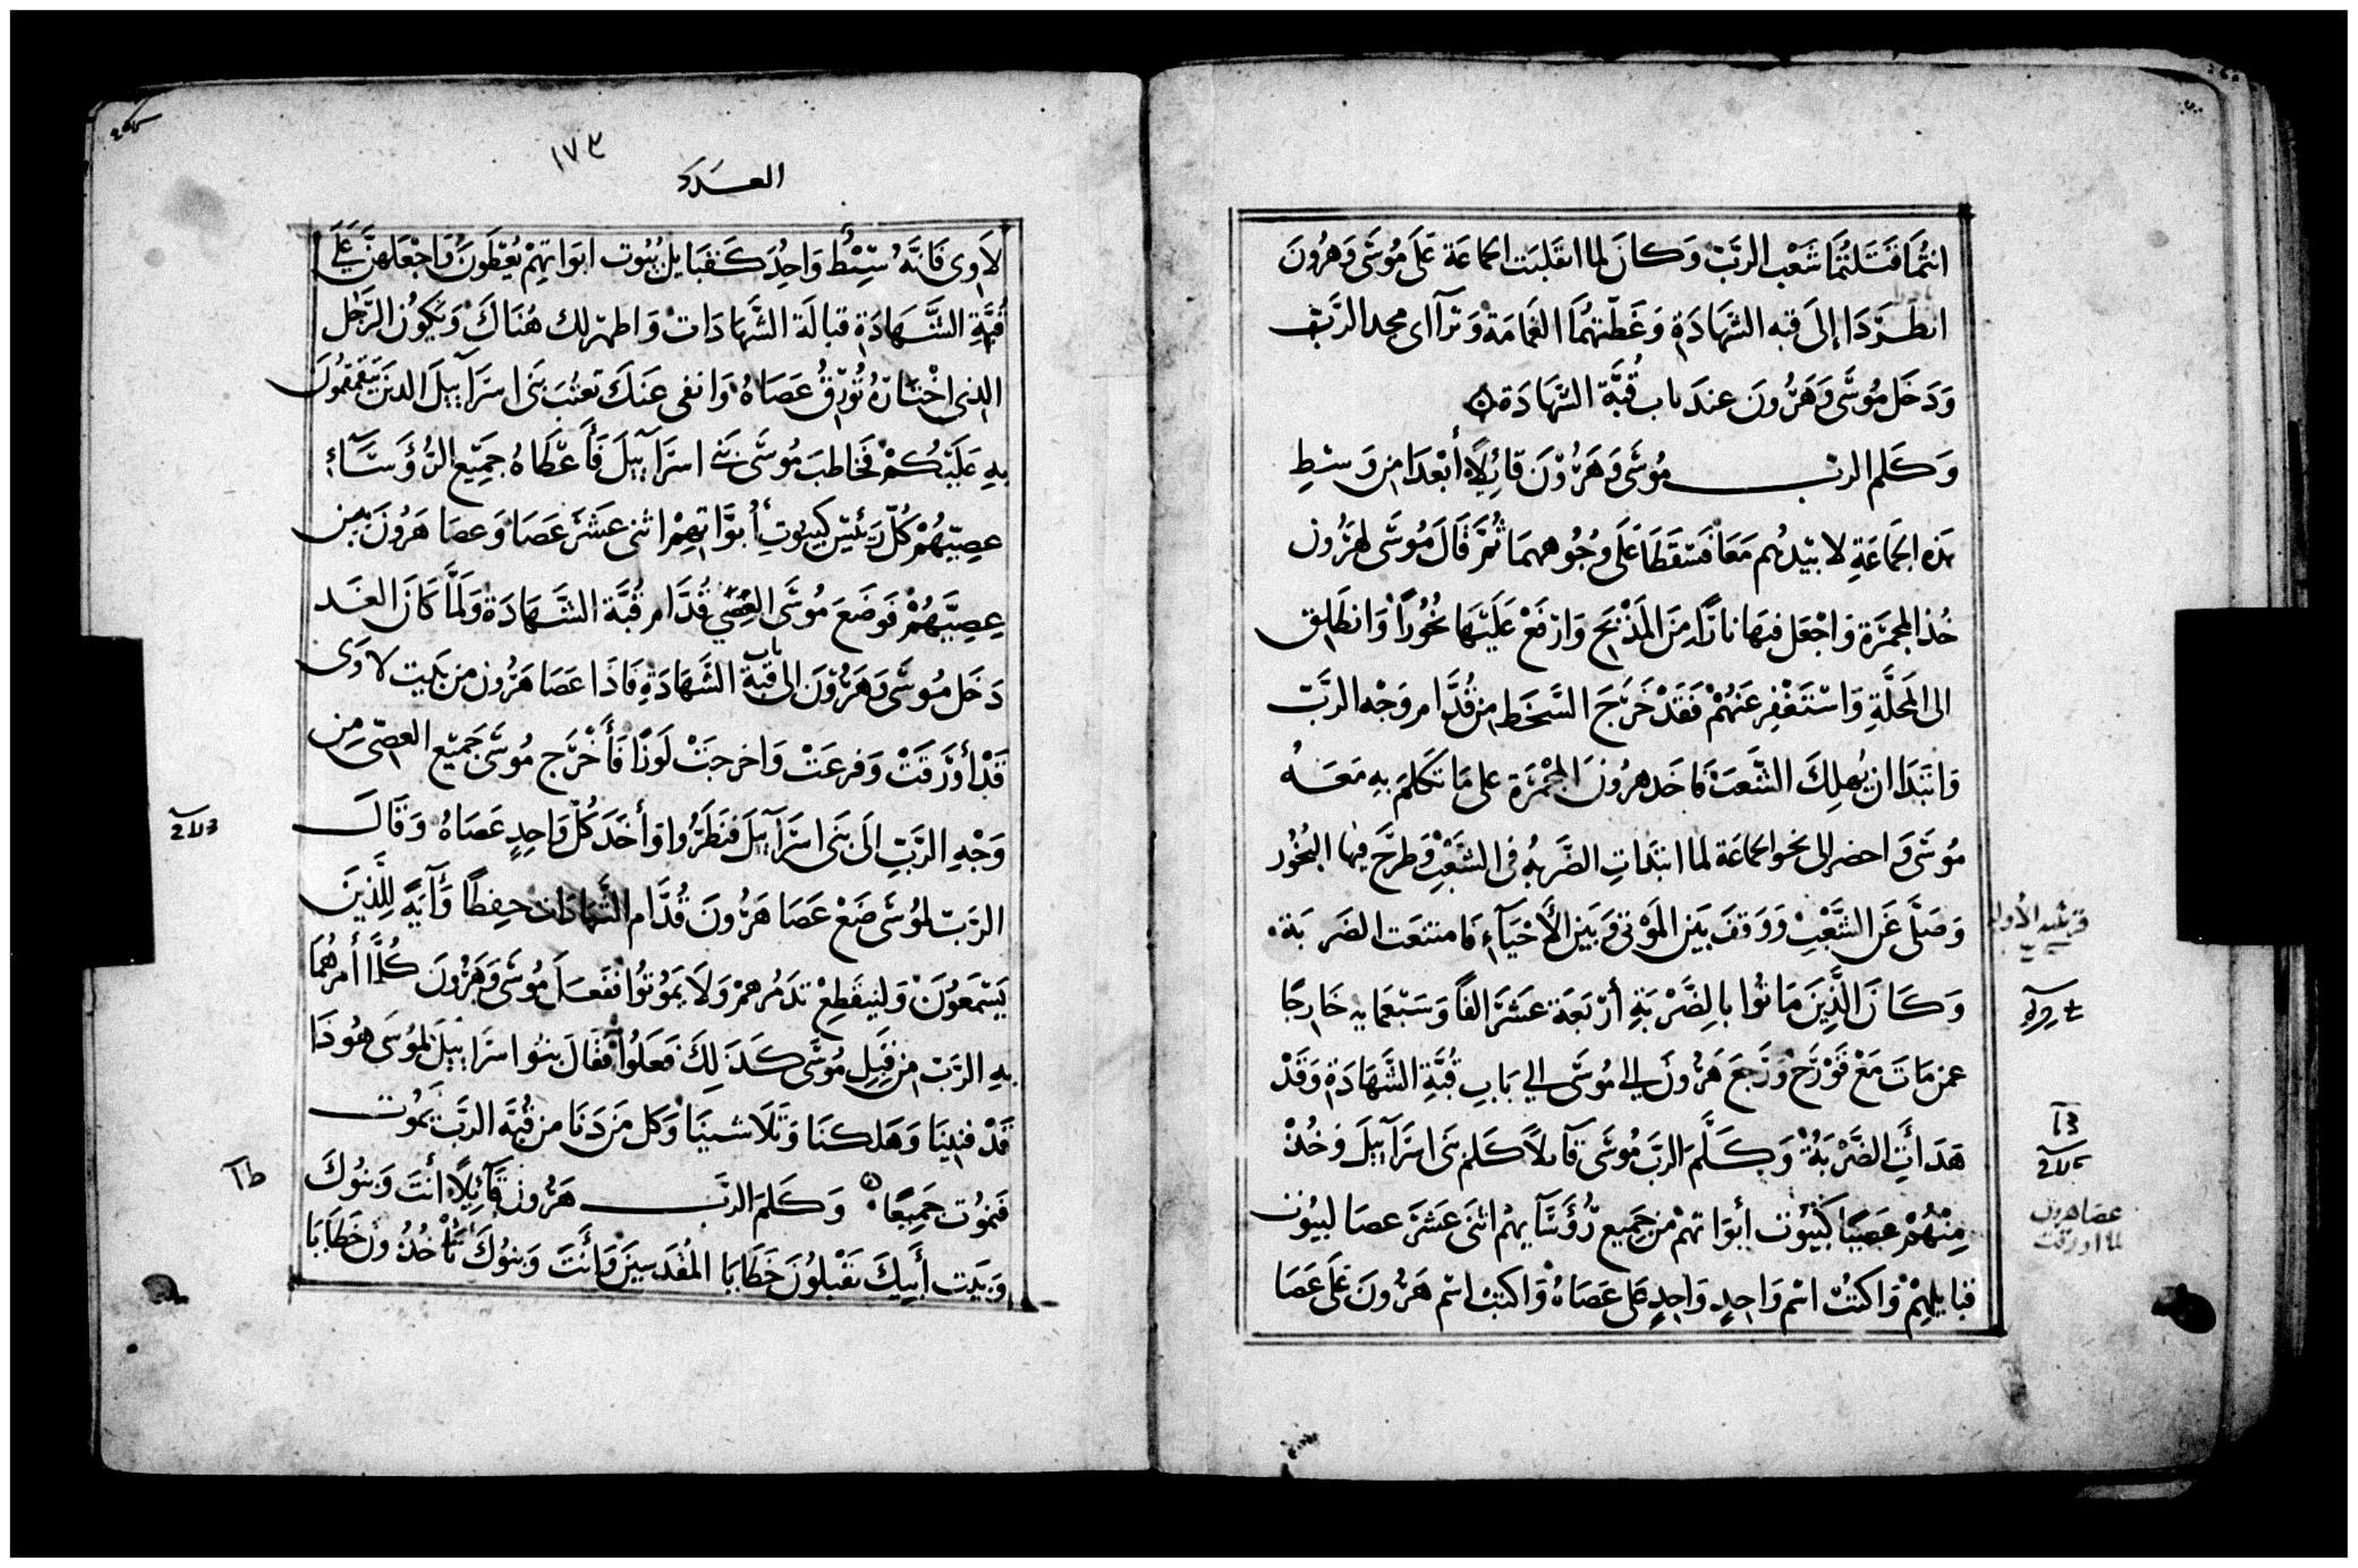 انتُمَا فَتَلتُمَا شَعْب الرَبّ وَكانَ لما انقلبَت الجماعَة عَلَى مُوسَى وَهرُونَ
انطَرَدَا إلَى قبه الشهَادَة وَغَطّتهُمَا الغَمَامَة وَترآاى مجد الرَبّ
وَدَخَل مُوسَى وَهَرُونَ عندَ باب قُبَّة الشهَادَة
وَكَلم الرب مُوسَى وَهَرُوْنَ قائِلاً أبْعدَا من وَسْطِ
هَذه الجمَاعَةِ لابيْدهُم مَعَا فسَقَطَا عَلَى وجُوههمَا ثُمَّ قَالَ مُوسَى لهَرُون
خُذ المجمَرَة وَاجْعَل فيهَا نارًا منَ المَذْبَح وَارْفَعْ عَلَيْهَا بخُورًا وَانطَلِق
الى المَحَلَّةِ وَاسْتَغْفِر عَنهُمْ فَقَدْ خَرَجَ السَّخَط من قُدَّام وَجْه الرَبّ
وَابتَدَا ان يُهلِكَ الشَّعبَ فاخَد هرُونَ المِجْمَرَة على مَا تكَلمَ بهِ مَعَهُ
مُوسَى وَاحضر الى نحو الجماعَة لما ابتَدَاتِ الضَربَهُ فى الشَعْبِ وَطرَحَ فيها البخُور
وَصَلَّى عَن الشَعْبِ وَوَقفَ بَين المَوْتى وَبَين الأَحْيَآءِ فَامتنعَت الضَربَة
وَكَانَ الَّذِينَ مَاتُوا بالضَّرْبَةِ أرْبَعَة عَشَرَ الفًا وَسَبْعمايه خَارِجًا
عمن مَاتَ مَعْ قَوْرَح وَرَجَع هَرُونَ الي مُوسَى الي بَابِ قُبَّةِ الشهَادَةِ وَقَدْ
هَدَأتِ الضَّرْبَةُ وَكَلَّمَ الربّ مُوسَى قآىلاً كَلم بَنى اسرَآييلَ وَخُذْ
مِنْهُمْ عصِيًّا كبُيُوت ابْوَاتهمْ من جَميع رُؤسَآيهمْ اثنَى عَشَرَ عصَا لبيُوت
قبايلهمْ وَاكتُبْ اسْم وَاحِدٍ وَاحِدٍ عَلى عَصَاهُ وَاكتبْ اسْم هَرُونَ عَلَى عَصَا
قريليه الأوله
عصا هرون
لما اورقت
١٧٣
العَدَد
لاَوى فَانَّهُ سِبْط وَاحِد كَقبَايل بيُوت ابوَاتهمْ يُعْطَونَ وَاجْعَلهنَّ فى
قُبَّةِ الشَّهَادَة قبالَة الشَّهَادَات وَاظهَرلك هُنَاكَ وَيكُون الرَجُل
الذى اخْتارَهُ تُورق عَصَاهُ وَانفى عَنكَ تَعتُب بَنى اسرَآييلَ الذين يتقَمقَمُونَ
بهِ عَلَيْكُمْ فخَاطبَ مُوسَى بَنى اسرَآييلَ فَأعْطَاهُ جَمِيع الرُؤسَآءِ
عصِيّهُمْ كُلّ رَئيْس كبيُوت أبوَاتِهمْ اثنى عَشَرَ عَصَا وَعصَا هَرُونَ بَين
عِصِيّهُمْ فَوَضَعَ مُوسَى العِصِيّ قُدَّام قُبَّة الشَّهَادَة وَلَمَّا كَانَ الغَد
دَخَل مُوسَى وَهَرُوْنَ الى باب قُبة الشَّهَادَةِ فَاذَا عَصَا هَرُون من بَيت لاوَى
قَدْ أورَقَتْ وَفرعَتْ وَاخرجَتْ لَوزًا فَأخْرَج مُوسَى جَميْع العصِيّ مِن
وَجْهِ الرَبّ الَى بَنى اسرَآييلَ فنَظرُوا وَأخَدَ كُل وَاحِدٍ عَصَاهُ وَقَالَ
الرَبّ لمُوسَى ضَعْ عَصَا هَرُونَ قُدَّام الشهَادَات حفِظًا وَآيَةً لِلَّذِينَ
يَسْمَعُونَ وَلينقَطِعْ تَدَمُرهمْ وَلاَ يمُوتُوا ففَعَلَ مُوسَى وَهَرُونَ كُلَّمَا أَمرهُمَا
بهِ الرَبّ من قِبَلِ مُوسَى كَذَلِكَ فعَلُوا فقَالَ بنُوا اسرَاييلَ لمُوسَى هُودَا
قَدْ فنيْنَا وَهَلكنَا وَتَلاَشينَا وَكل مَن دَنَا من قُبَّة الرَبّ يَمُوت
فَنمُوت جَميعًا وَكَلمَ الرَّب هَرُون قَآئِلاً أنتَ وَبنُوكَ
وَبَيت أَبيكَ تَقْبلُونَ خَطَايَا المُقدَسِين وَأنتَ وَبنُوكَ تَأخُذُونَ خَطَايَا